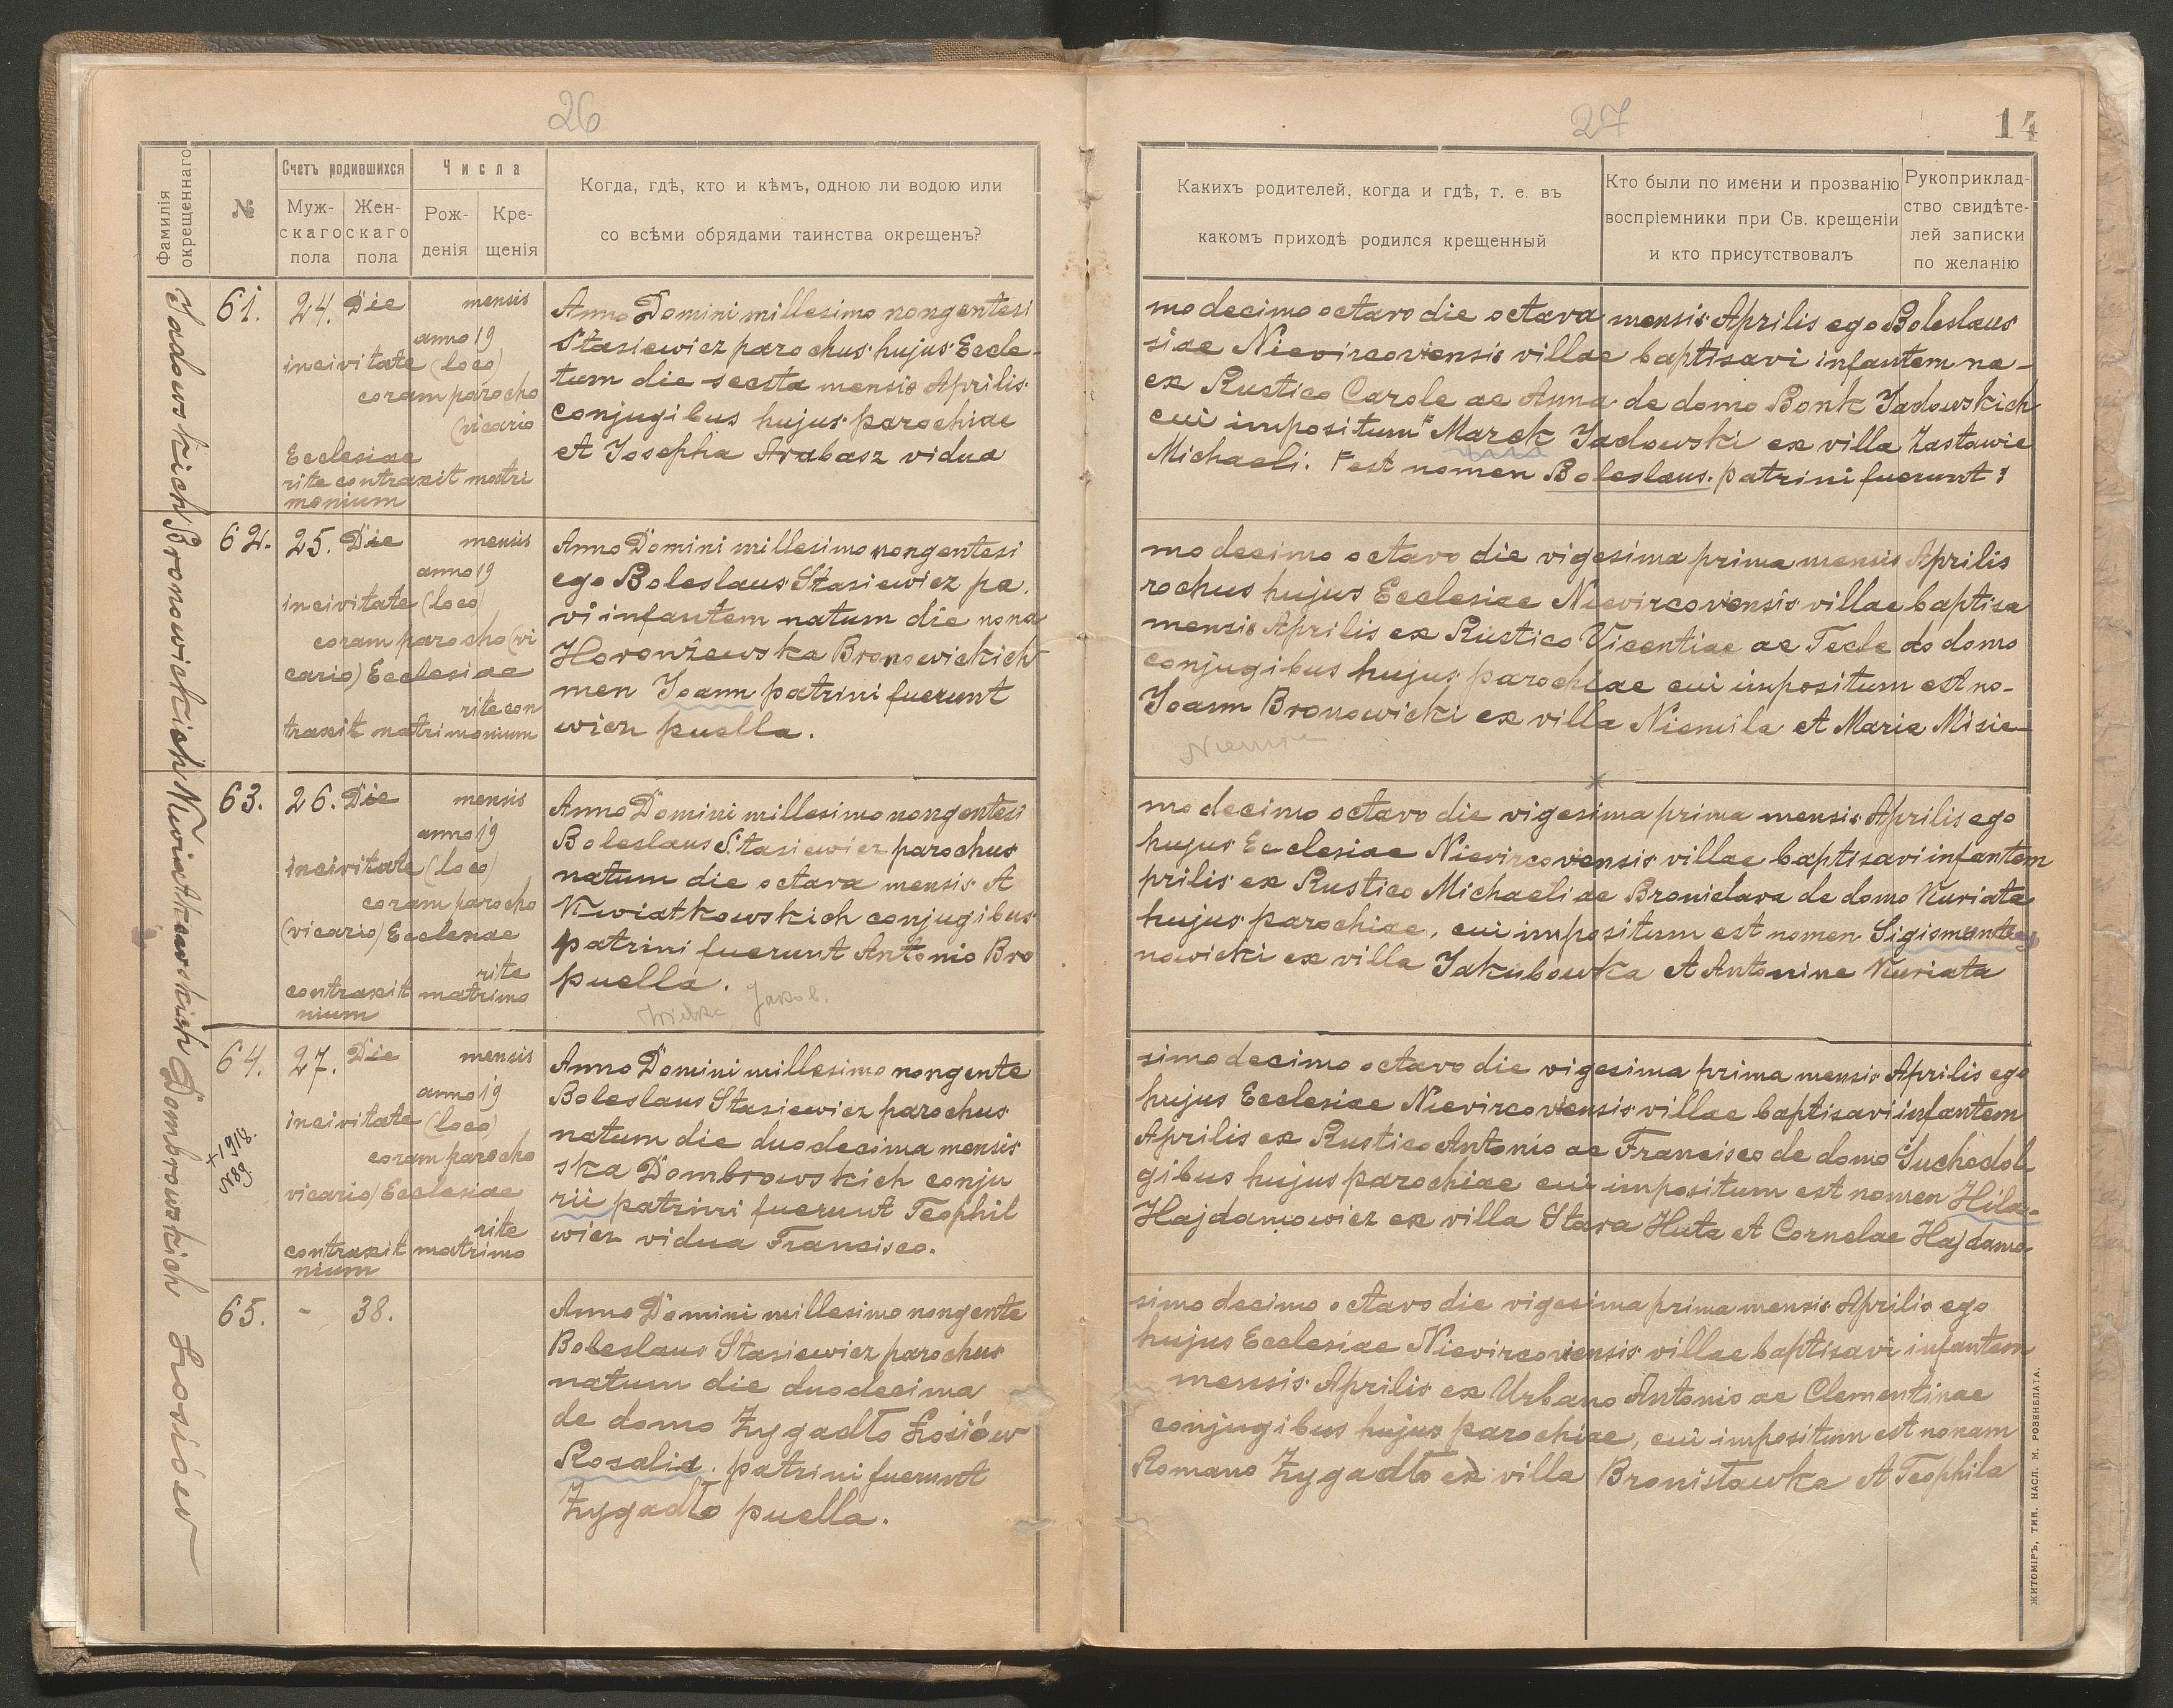 26
Фамилія
окрещеннаго
№
Счетъ родившихся
Муж-
скаго
пола
Жен-
скаго
пола
Числа
Рож-
денія
Кре-
щенія
Когда, гдѣ, кто и кѣмъ, одною ли водою или
со всѣми обрядами таинства окрещенъ?
Jadowskich
61.
24.
Die mensis
anno 19
in civitate (loco)
coram parocho
(vicario
Ecclesiae
rite contraxit matri
monium
Anno Domini millesimo nongentesi
Stasiewicz parochus hujus Eccle-
tum die secsta mensis Aprilis
conjugibus hujus parochiae
et Josepha Arabasz vidua
Bronowickich
62.
25.
Die mensis
anno 19
in civitate (loco)
coram parocho (vi
cario) Ecclesiae
rite con
traxit matrimonium
Anno Domini millesimo nongentesi
ego Boleslaus Stasiewicz pa.
vi infantem natum die nona
Horonżewska Bronowickich
men Joann patrini fuerunt
wicz puella.
Kwiatkowskich
63.
26.
Die mensis
anno 19
in civitate (loco)
coram parocho
(vicario) Ecclesiae
rite
contraxit matrimo
nium
Anno Domini millesimo nongentesi
Boleslaus Stasiewicz parochus
natum die octava mensis A
Kwiatkowskich conjugibus
patrini fuerunt Antonio Bro
puella.
Jakob.
Dombrowskich
64.
+1918.
№89
27.
Die mensis
anno 19
in civitate (loco)
coram parocho
vicario) Ecclesiae
rite
contraxit matrimo
nium
Anno Domini millesimo nongente
Boleslaus Stasiewicz parochus
natum die duodecima mensis
ska Dombrowskich conju
rii patrini fuerunt Teophil
wicz vidua Francisco.
Łosiów
65.
-
38.
Anno Domini millesimo nongente
Boleslaus Stasiewicz parochus
natum die duodecima
de domo Zygadło Łosiów
Rosalia. patrini fuerunt
Zygadło puella.
27
14
Какихъ родителей, когда и гдѣ, т. е. въ
какомъ приходѣ родился крещенный
Кто были по имени и прозванію
воспріемники при Св. крещеніи
и кто присутствовалъ
Рукоприклад-
ство свидѣте-
лей записки
по желанію
mo decimo octavo die octava mensis Aprilis ego Boleslaus
siae Nievircoviensis villae baptisavi infantem na-
ex Rustico Carole ac Anna de domo Bonk Jadowskich
cui impositum Γ Marek Jadowski ex villa Zastawie
Michaeli. Γ est nomen Boleslaus. patrini fuerunt:
mo decimo octavo die vigesima prima mensis Aprilis
rochus hujus Ecclesiae Nievircoviensis villae baptisa
mensis Aprilis ex Rustico Vicentiae ac Tecle do domo
conjugibus hujus parochiae cui impositum est no-
Joann Bronowicki ex villa Niemila et Maria Misie
mo decimo octavo die vigesima prima mensis Aprilis ego
hujus Ecclesiae Nievircoviensis villae baptisavi infantem
prilis ex Rustico Michaeli ac Bronislava de domo Kuriata
hujus parochiae, cui impositum est nomen Sigismundus
nowicki ex villa Jakubowka et Antonine Kuriata
simo decimo octavo die vigesima prima mensis Aprilis ego
hujus Ecclesiae Nievircoviensis villae baptisavi infantem
Aprilis ex Rustico Antonio ac Francisco de domo Suchodol
gibus hujus parochiae cui impositum est nomen Hila-
Hajdamowicz ex villa Stara Huta et Cornelae Hajdamo-
simo decimo octavo die vigesima prima mensis Aprilis ego
hujus Ecclesiae Nievircoviensis villae baptisavi infantem
mensis Aprilis ex Urbano Antonio ac Clementinae
conjugibus hujus parochiae, cui impositum est nonam
Romano Zygadło ex villa Bronisławka et Teophila
ЖИТОМІРЪ, ТИП. НАСЛ. М. РОЗЕНБЛАТА.